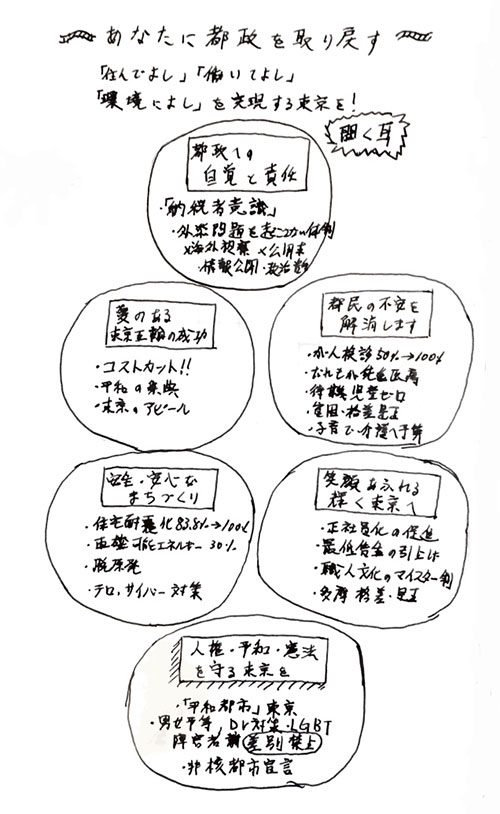 あなたに都政を取り戻す
「住んでよし」「働いてよし」
「環境によし」を実現する東京を!
聞く耳
都政への
自覚と責任
・「納税者意識」
・外添問題を起こさない体制
×海外視察 ×公用車
・情報公開・政治資金
夢のある
東京五輪の成功
・コストカット!!
・平和の祭典
・東京のアピール
都民の不安を
解消します
・がん検診50%→100%
・だれでも先進医療
・待機児童ゼロ
・貧困・格差是正
・子育て・介護へ予算
安全・安心な
まちづくり
・住宅耐震化83.8%→100%
・再生可能エネルギー30%
・脱原発
・テロ、サイバー対策
笑顔あふれる
輝く東京へ
・正社員化の促進
・最低賃金の引上げ
・職人文化のマイスター制
・多摩格差・是正
人権・平和・憲法
を守る東京を
・「平和都市」東京
・男女平等、DV対策・LGBT
障害者 差別禁止
・非核都市宣言